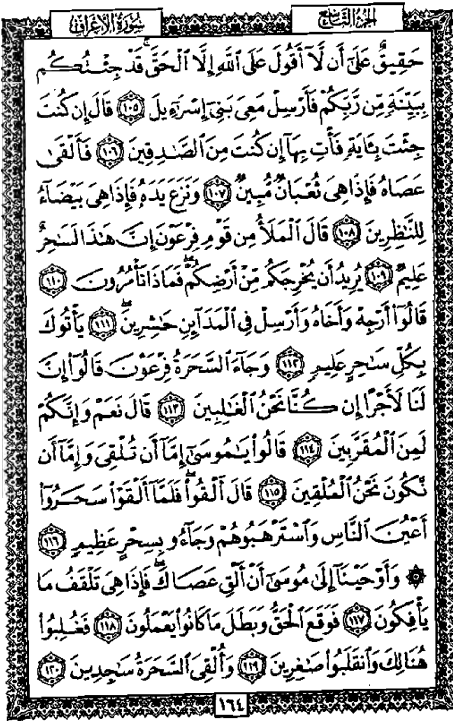 سورة الأعراف الجزء التاسع
حَقِيقٌ عَلَىٰٓ أَن لَّآ أَقُولَ عَلَى ٱللَّهِ إِلَّا ٱلْحَقَّ ۚ قَدْ جِئْتُكُم
بِبَيِّنَةٍ مِّن رَّبِّكُمْ فَأَرْسِلْ مَعِىَ بَنِىٓ إِسْرَٰٓءِيلَ ١٠٥ قَالَ إِن كُنتَ
جِئْتَ بِـَٔايَةٍ فَأْتِ بِهَآ إِن كُنتَ مِنَ ٱلصَّٰدِقِينَ ١٠٦ فَأَلْقَىٰ
عَصَاهُ فَإِذَا هِىَ ثُعْبَانٌ مُّبِينٌ ١٠٧ وَنَزَعَ يَدَهُۥ فَإِذَا هِىَ بَيْضَآءُ
لِلنَّٰظِرِينَ ١٠٨ قَالَ ٱلْمَلَأُ مِن قَوْمِ فِرْعَوْنَ إِنَّ هَٰذَا لَسَٰحِرٌ
عَلِيمٌ ١٠٩ يُرِيدُ أَن يُخْرِجَكُم مِّنْ أَرْضِكُمْ ۖ فَمَاذَا تَأْمُرُونَ ١١٠
قَالُوٓا۟ أَرْجِهْ وَأَخَاهُ وَأَرْسِلْ فِى ٱلْمَدَآئِنِ حَٰشِرِينَ ١١١ يَأْتُوكَ
بِكُلِّ سَٰحِرٍ عَلِيمٍ ١١٢ وَجَآءَ ٱلسَّحَرَةُ فِرْعَوْنَ قَالُوٓا۟ إِنَّ
لَنَا لَأَجْرًا إِن كُنَّا نَحْنُ ٱلْغَٰلِبِينَ ١١٣ قَالَ نَعَمْ وَإِنَّكُمْ
لَمِنَ ٱلْمُقَرَّبِينَ ١١٤ قَالُوا۟ يَٰمُوسَىٰٓ إِمَّآ أَن تُلْقِىَ وَإِمَّآ أَن
نَّكُونَ نَحْنُ ٱلْمُلْقِينَ ١١٥ قَالَ أَلْقُوا۟ ۖ فَلَمَّآ أَلْقَوْا۟ سَحَرُوٓا۟
أَعْيُنَ ٱلنَّاسِ وَٱسْتَرْهَبُوهُمْ وَجَآءُو بِسِحْرٍ عَظِيمٍ ١١٦
۞ وَأَوْحَيْنَآ إِلَىٰ مُوسَىٰٓ أَنْ أَلْقِ عَصَاكَ ۖ فَإِذَا هِىَ تَلْقَفُ مَا
يَأْفِكُونَ ١١٧ فَوَقَعَ ٱلْحَقُّ وَبَطَلَ مَا كَانُوا۟ يَعْمَلُونَ ١١٨ فَغُلِبُوا۟
هُنَالِكَ وَٱنقَلَبُوا۟ صَٰغِرِينَ ١١٩ وَأُلْقِىَ ٱلسَّحَرَةُ سَٰجِدِينَ ١٢٠
١٦٤